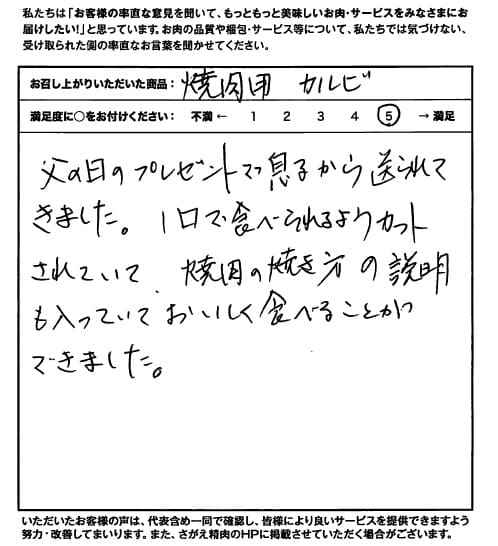 私たちは「お客様の率直な意見を聞いて、もっともっと美味しいお肉・サービスをみなさまにお
届けしたい!」と思っています。お肉の品質や梱包・サービス等について、私たちでは気づけない、
受け取られた側の率直なお言葉を聞かせてください。
お召し上がりいただいた商品: 焼肉用 カルビ
満足度に○をお付けください: 不満 ← 1 2 3 4 5 → 満足
父の日のプレゼントで息子から送られて
きました。1口で食べられるようカット
されていて、焼肉の焼き方の説明
も入っていておいしく食べることが
できました。
いただいたお客様の声は、代表含め一同で確認し、皆様により良いサービスを提供できますよう
努力・改善してまいります。また、さがえ精肉のHPに掲載させていただく場合がございます。